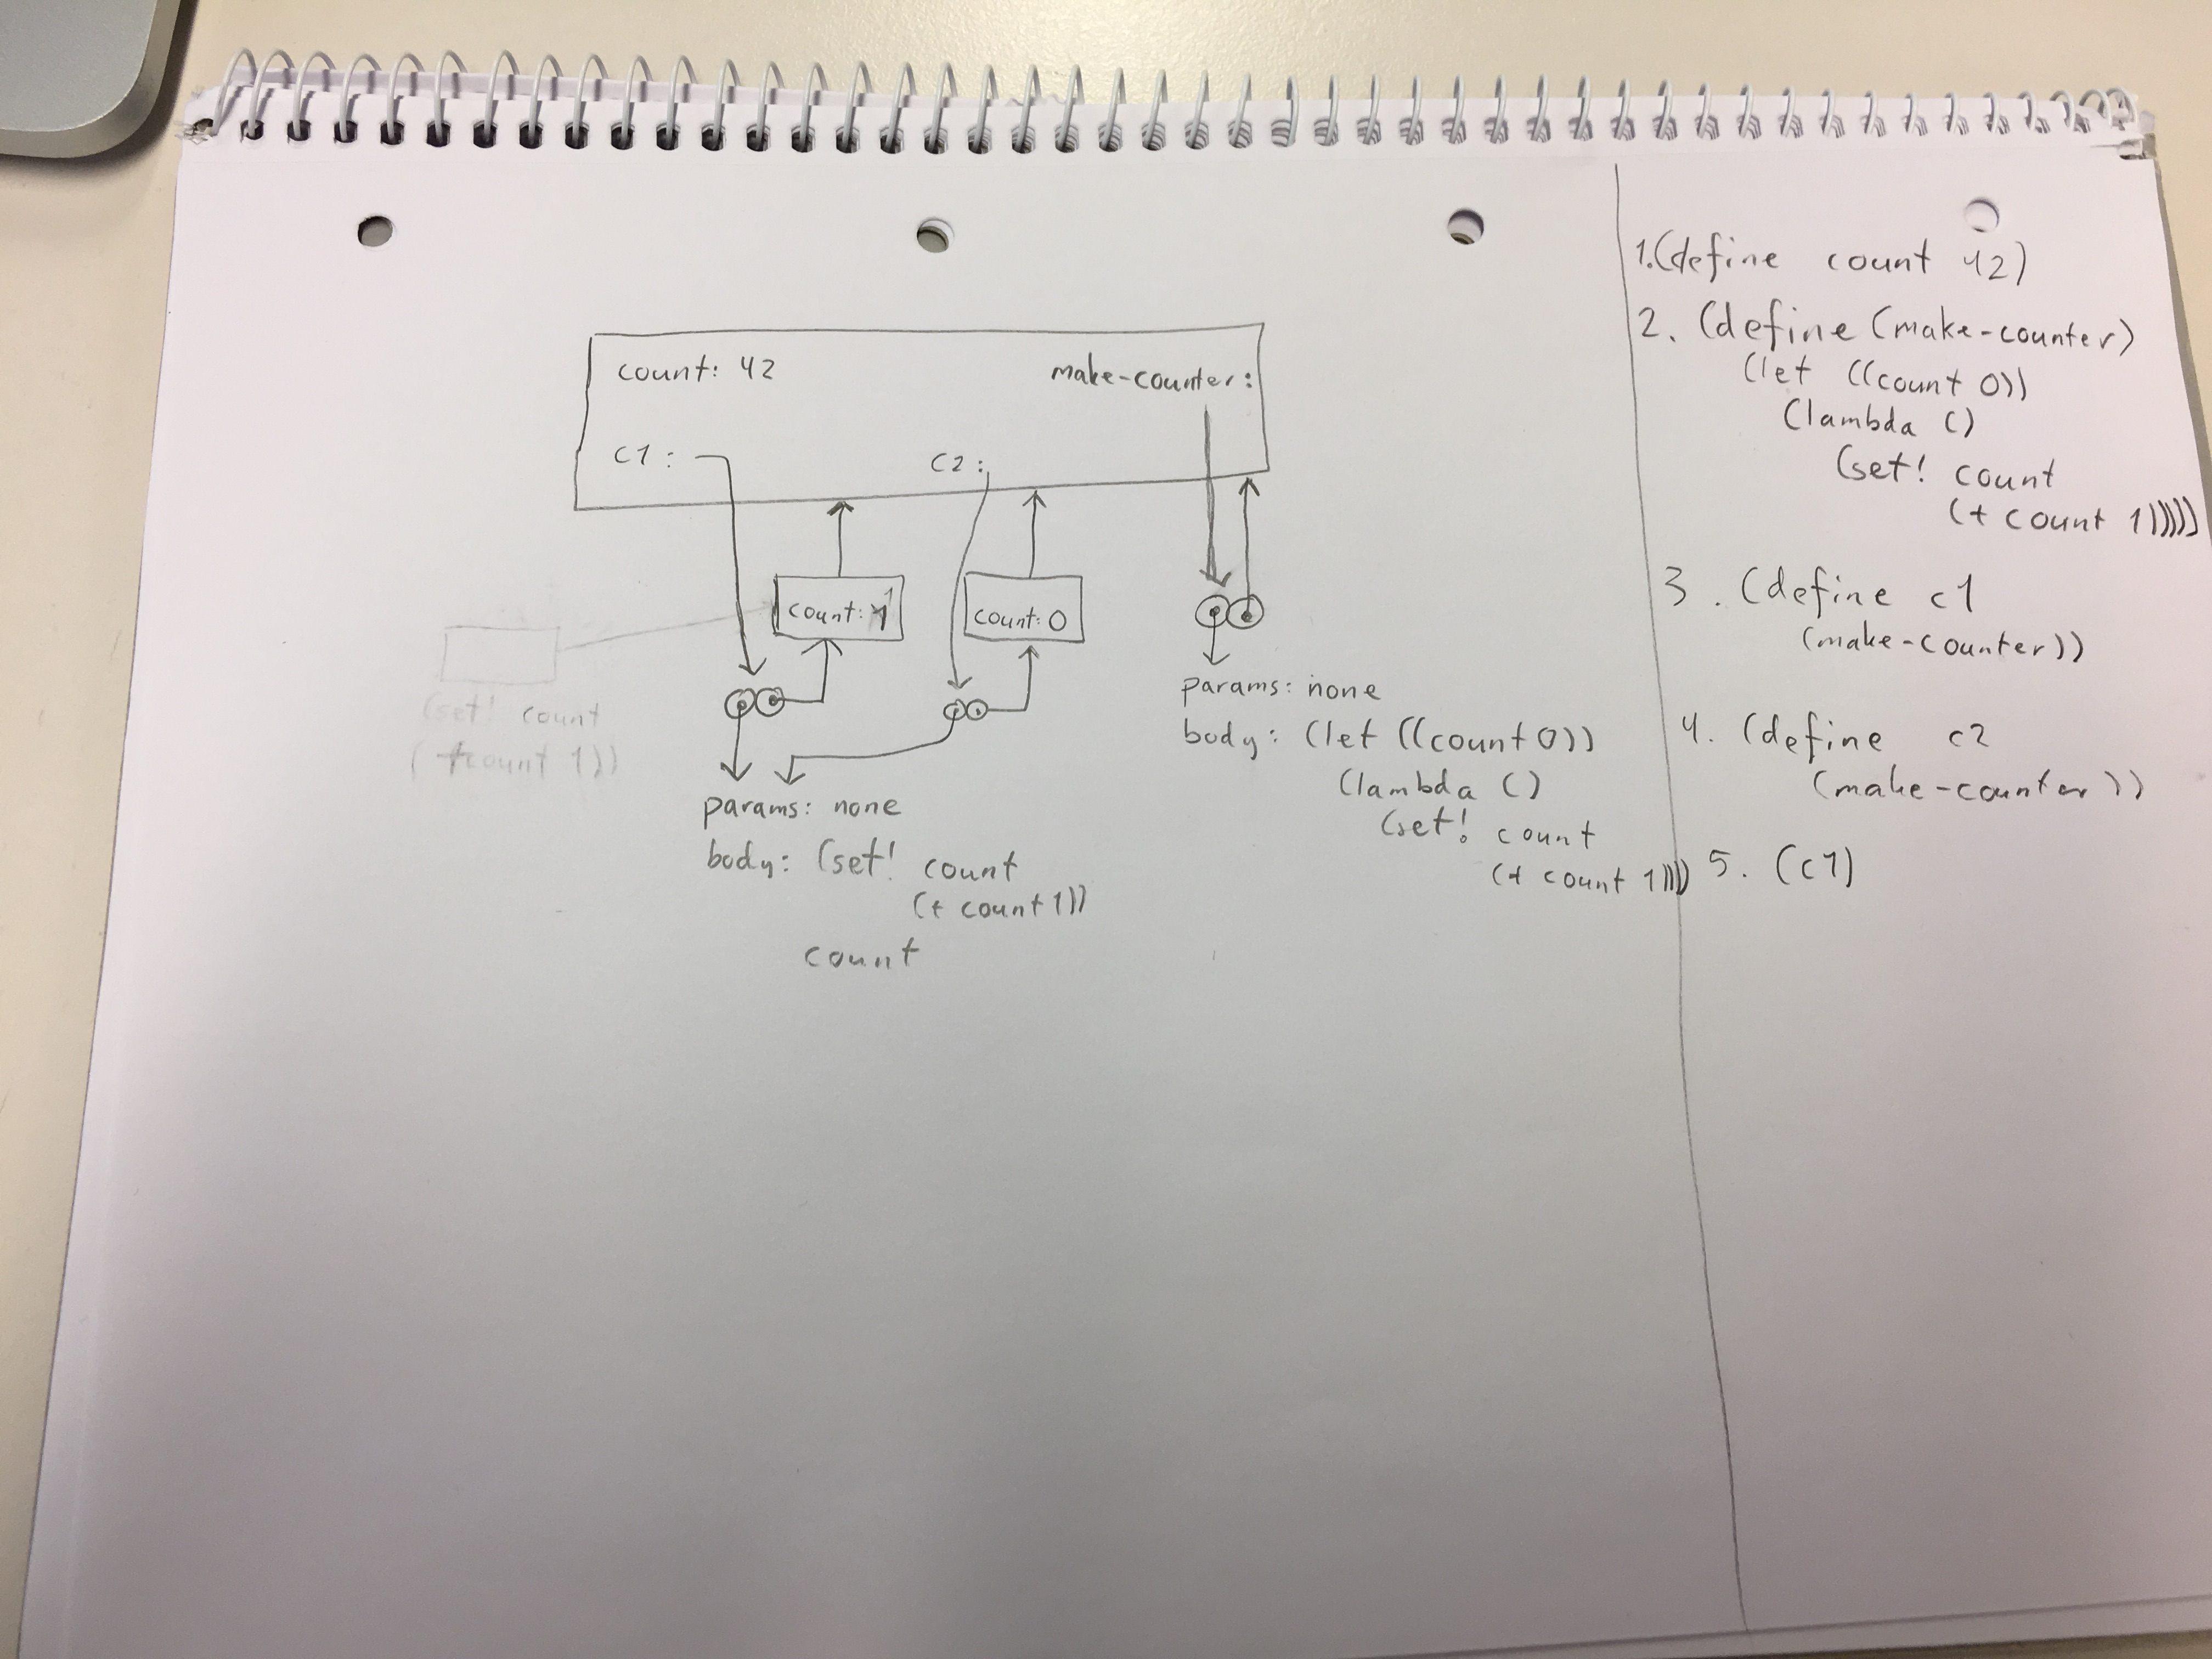 count: 42
make-counter:
c1:
c2:
count: 1
count: 0
(set! count
(+ count 1))
params: none
body: (set! count
(+ count 1))
count
params: none
body: (let ((count 0))
(lambda ()
(set! count
(+ count 1))))
1. (define count 42)
2. (define (make-counter)
(let ((count 0))
(lambda ()
(set! count
(+ count 1)))))
3. (define c1
(make-counter))
4. (define c2
(make-counter))
5. (c1)